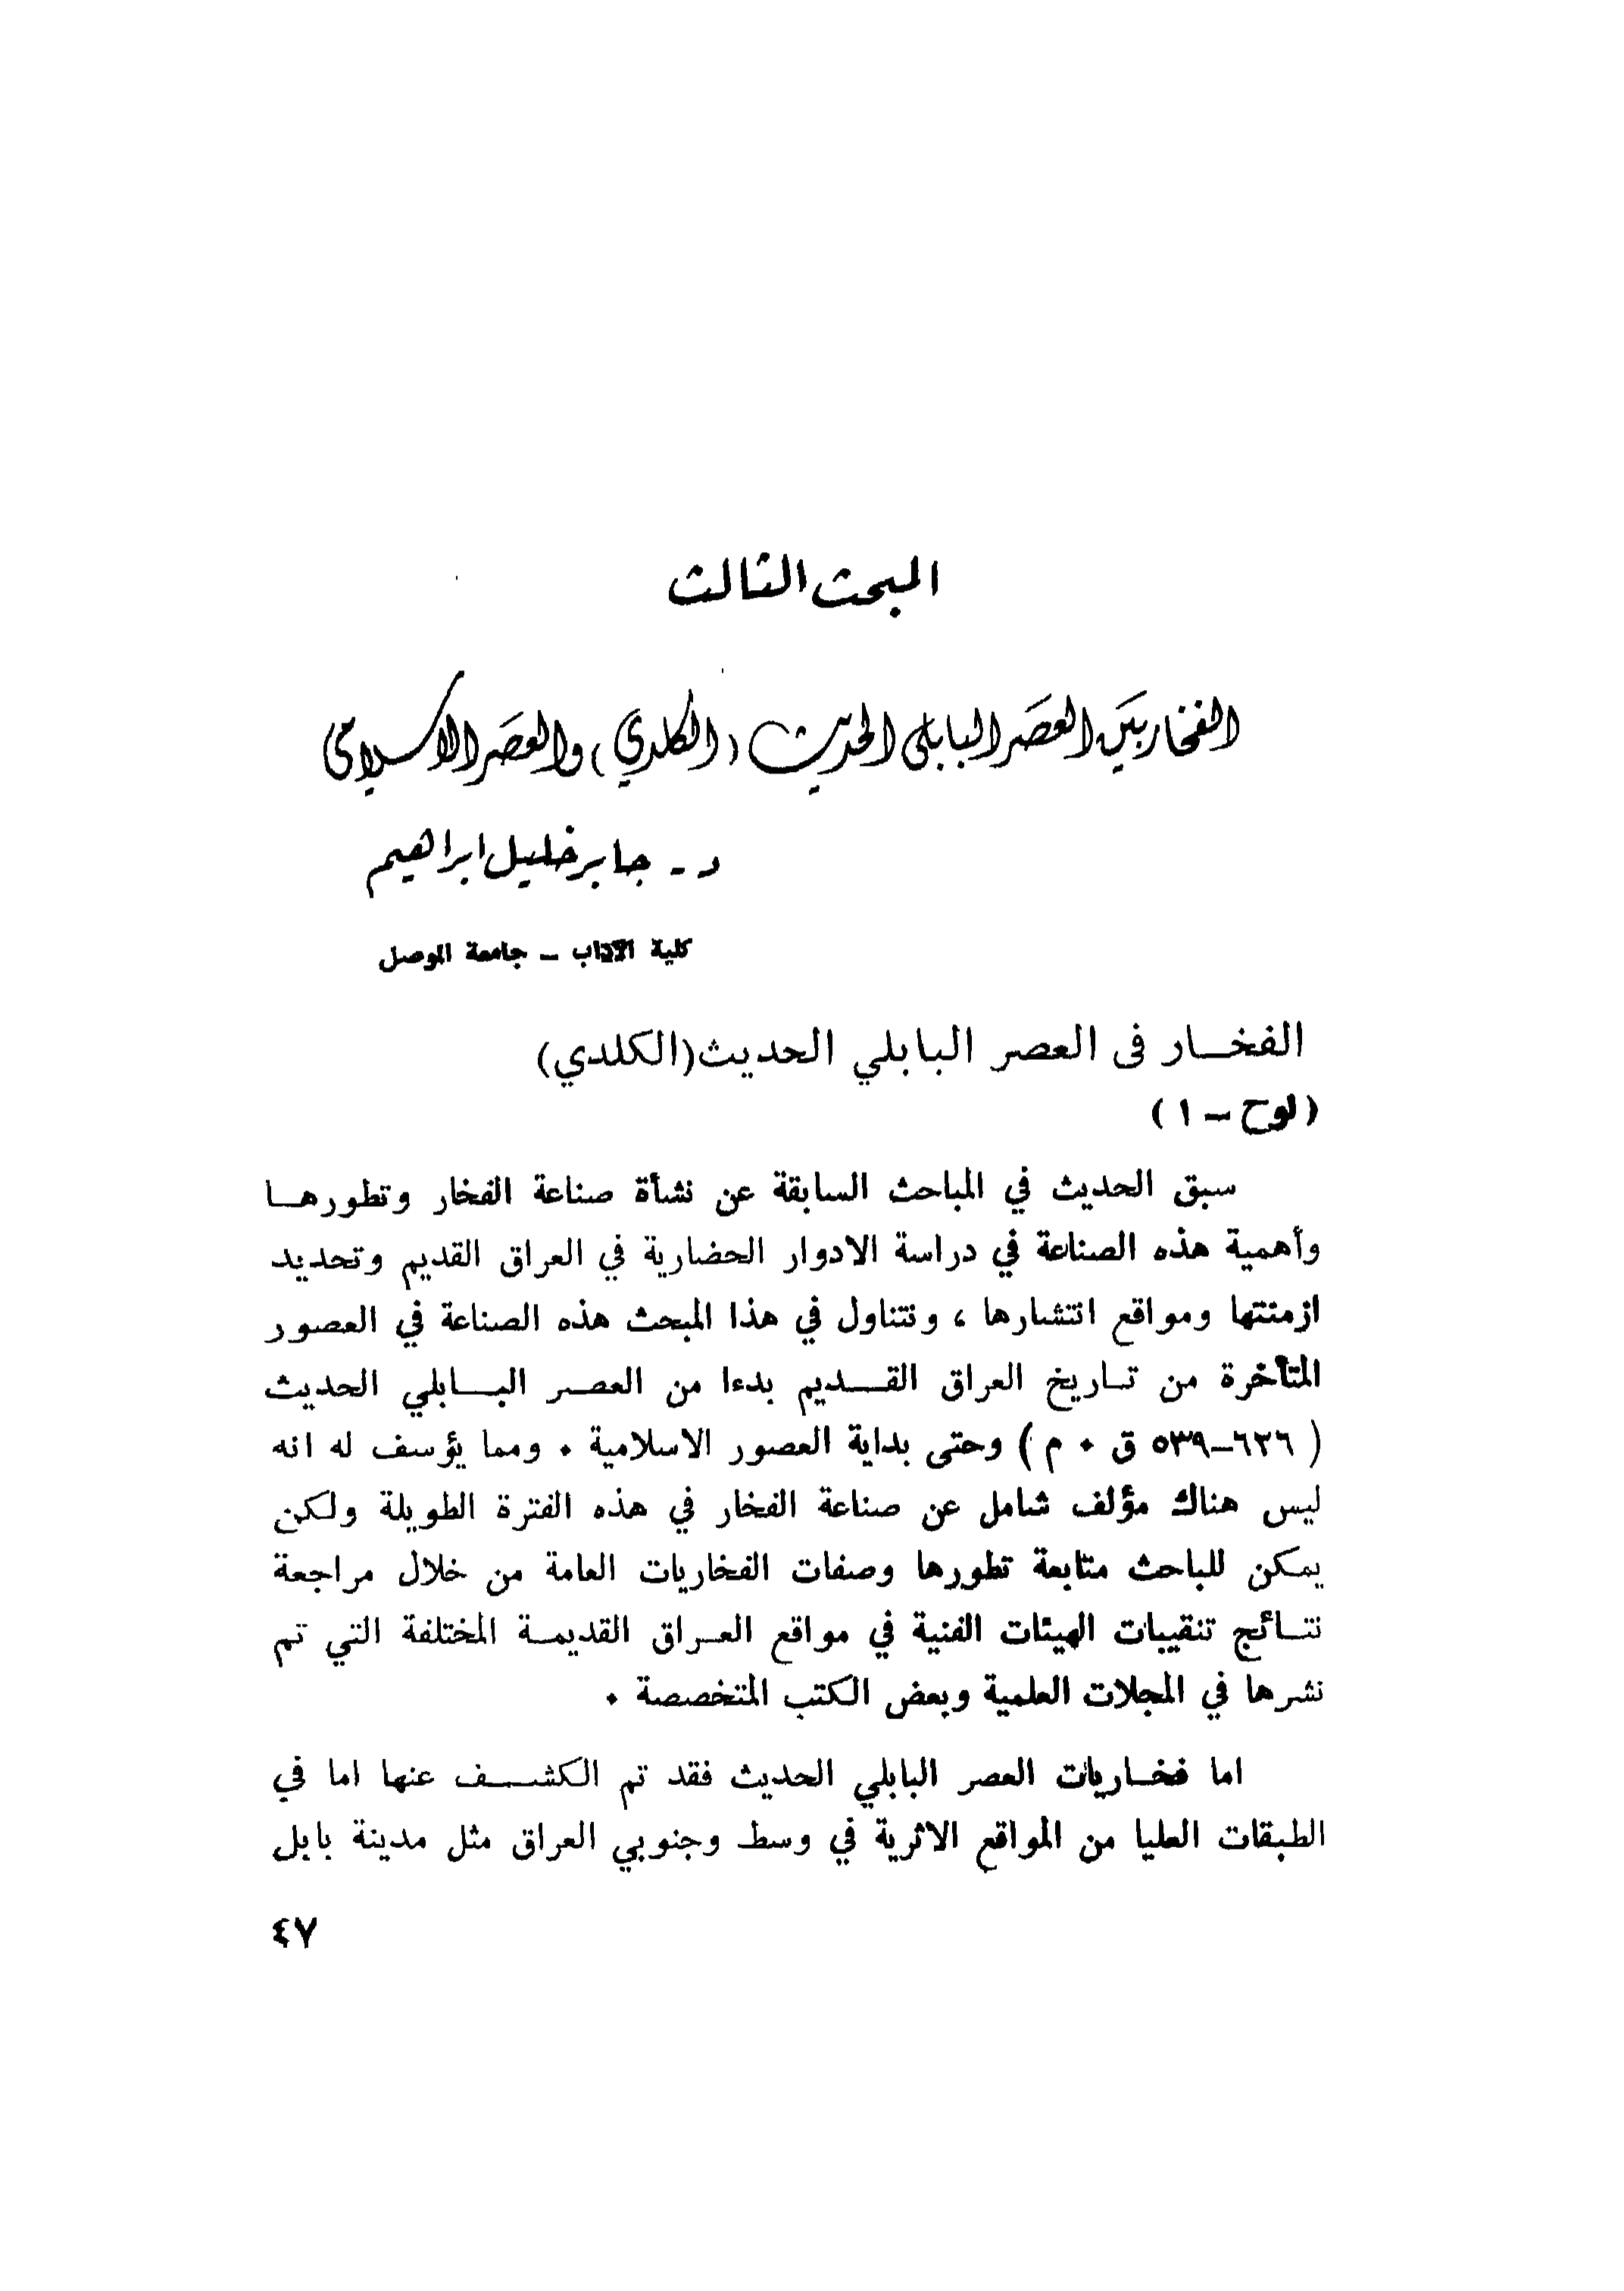 المبحث الثالث
الفخار بين العصر البابلي الحديث (الكلدي) والعصر الاسلامي
د - جابر خليل ابراهيم
كلية الآداب - جامعة الموصل
الفخار في العصر البابلي الحديث (الكلدي)
(لوح - ١)
سبق الحديث في المباحث السابقة عن نشأة صناعة الفخار وتطورها
وأهمية هذه الصناعة في دراسة الادوار الحضارية في العراق القديم وتحديد
ازمنتها ومواقع انتشارها ، ونتناول في هذا المبحث هذه الصناعة في العصور
المتأخرة من تاريخ العراق القديم بدءا من العصر البابلي الحديث
( ٦٢٦-٥٣٩ ق . م ) وحتى بداية العصور الاسلامية . ومما يؤسف له انه
ليس هناك مؤلف شامل عن صناعة الفخار في هذه الفترة الطويلة ولكن
يمكن للباحث متابعة تطورها وصفات الفخاريات العامة من خلال مراجعة
نتائج تنقيبات الهيئات الفنية في مواقع العراق القديمة المختلفة التي تم
نشرها في المجلات العلمية وبعض الكتب المتخصصة .
اما فخاريات العصر البابلي الحديث فقد تم الكشف عنها اما في
الطبقات العليا من المواقع الاثرية في وسط وجنوبي العراق مثل مدينة بابل
٤٧